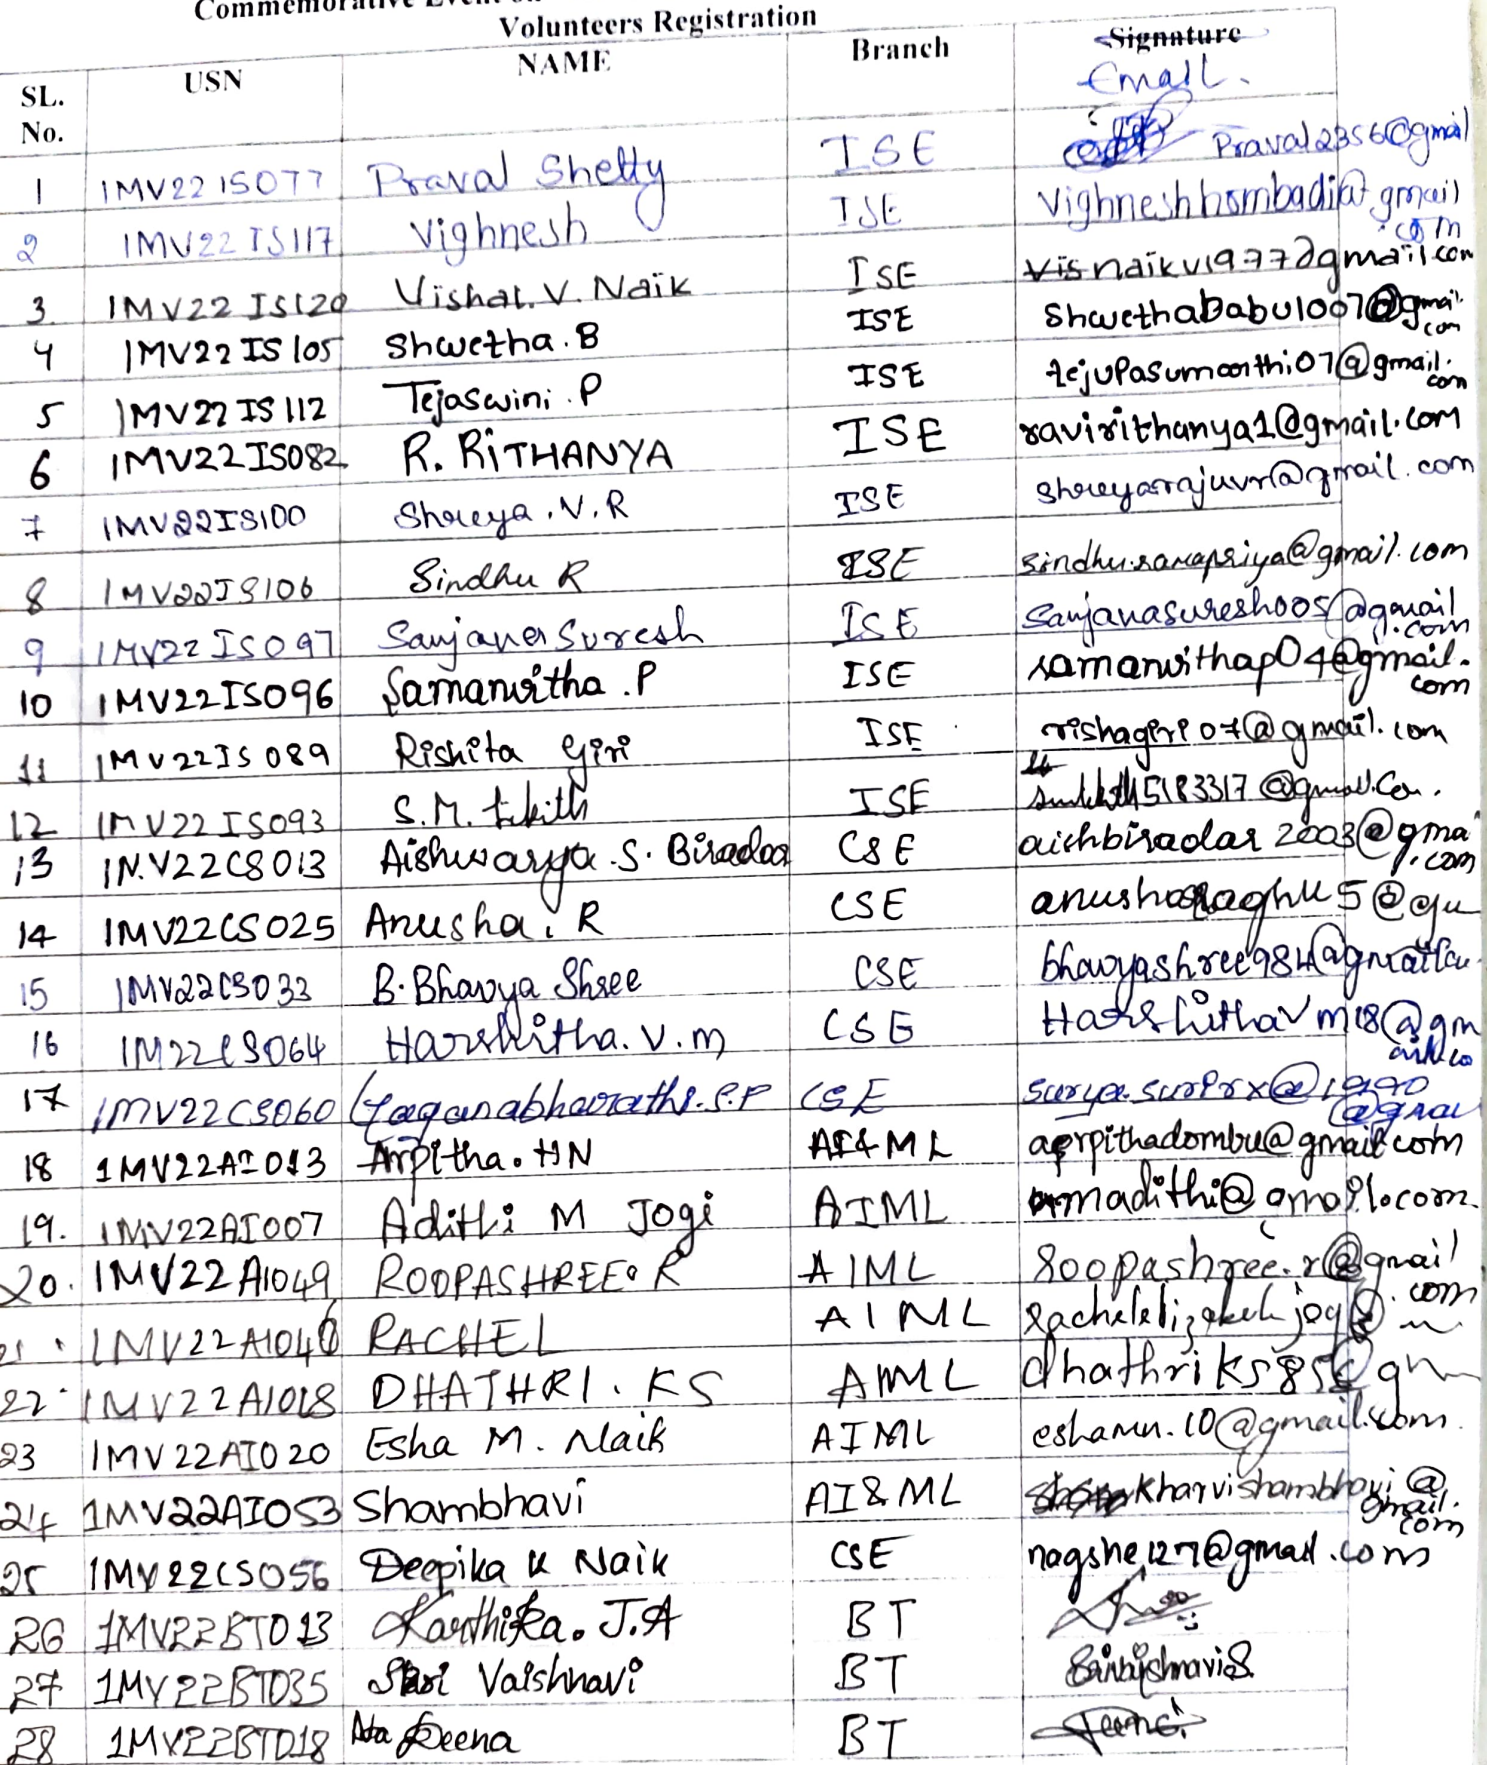 Commemorative Event
Volunteers Registration
SL. No. USN NAME Branch Signature Email.
1 1MV22IS077 Praval Shetty ISE Praval2356@gmail
2 1MV22IS117 Vighnesh ISE Vighneshhombadi@gmail.com
3. 1MV22IS120 Vishal.V.Naik ISE visnaikv1977@gmail.com
4 1MV22IS105 Shwetha.B ISE Shwethababu1007@gmail.com
5 1MV22IS112 Tejaswini.P ISE tejupasumarthi07@gmail.com
6 1MV22IS082 R. RITHANYA ISE ravirithanya1@gmail.com
7 1MV22IS100 Shreya.V.R ISE shreyarajuvr@gmail.com
8 1MV22IS106 Sindhu R ISE sindhu.ramapriya@gmail.com
9 1MV22IS097 Sanjana Suresh ISE Sanjanasuresh005@gmail.com
10 1MV22IS096 Samanvitha.P ISE samanvithap04@gmail.com
11 1MV22IS089 Rishita Giri ISE rishagiri07@gmail.com
12 1MV22IS093 S.M. Likith ISE
13 1MV22CS013 Aishwarya.S.Biradar CSE aishbiradar2003@gma.com
14 1MV22CS025 Anusha.R CSE anusharaghu5@
15 1MV22CS033 B.Bhavya Shree CSE bhavyashree984@gmail.co
16 1M22CS064 Harshitha.V.m CSE HarshithaVm18@gmail.co
17 1MV22CS060 Gaganabharathi.S.P CSE
18 1MV22AI013 Arpitha.HN AI&ML arpithadombu@gmail.com
19. 1MV22AI007 Adithi M Jogi AIML madithi@gmail.com.
20. 1MV22AI049 ROOPASHREE.R AIML roopashree.r@gmail.com
21. 1MV22AI046 RACHEL AIML rachelelizabethjoy@
22. 1MV22AI018 DHATHRI.KS AIML dhathriks85@gm
23 1MV22AI020 Esha M. Naik AIML eshamn.10@gmail.com.
24 1MV22AI053 Shambhavi AI&ML kharvishambhavi@gmail.com
25 1MV22CS056 Deepika K Naik CSE nagshe127@gmail.com
26 1MV22BT013 Karthika.J.A BT
27 1MV22BT035 Sri Vaishnavi BT
28 1MV22BT018 Deena BT